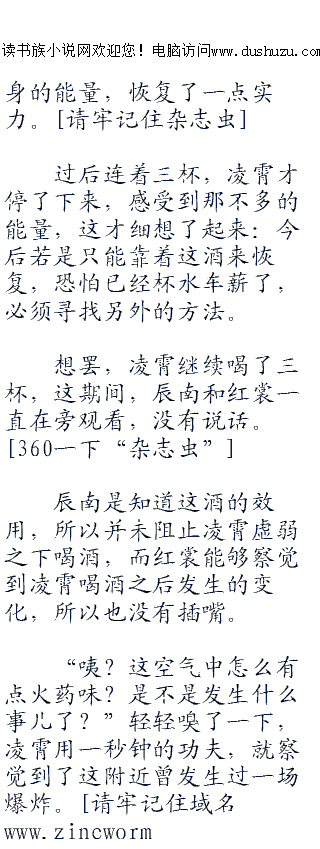 读书族小说网欢迎您！电脑访问www.dushuzu.com
身的能量，恢复了一点实
力。[请牢记住杂志虫]
过后连着三杯，凌霄才
停了下来，感受到那不多的
能量，这才细想了起来：今
后若是只能靠着这酒来恢
复，恐怕已经杯水车薪了，
必须寻找另外的方法。
想罢，凌霄继续喝了三
杯，这期间，辰南和红裳一
直在旁观看，没有说话。
[360一下“杂志虫”]
辰南是知道这酒的效
用，所以并未阻止凌霄虚弱
之下喝酒，而红裳能够察觉
到凌霄喝酒之后发生的变
化，所以也没有插嘴。
“咦？这空气中怎么有
点火药味？是不是发生什么
事儿了？”轻轻嗅了一下，
凌霄用一秒钟的功夫，就察
觉到了这附近曾发生过一场
爆炸。[请牢记住域名
www.zincworm